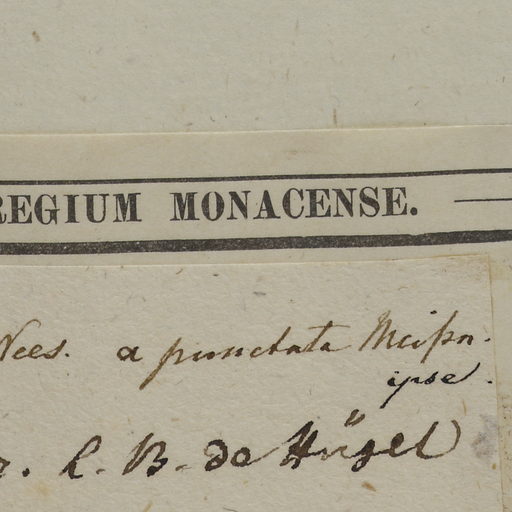 REGIUM MONACENSE.
Nees. a punctata Meißn.
ipse.
r. L. B. de Hügel